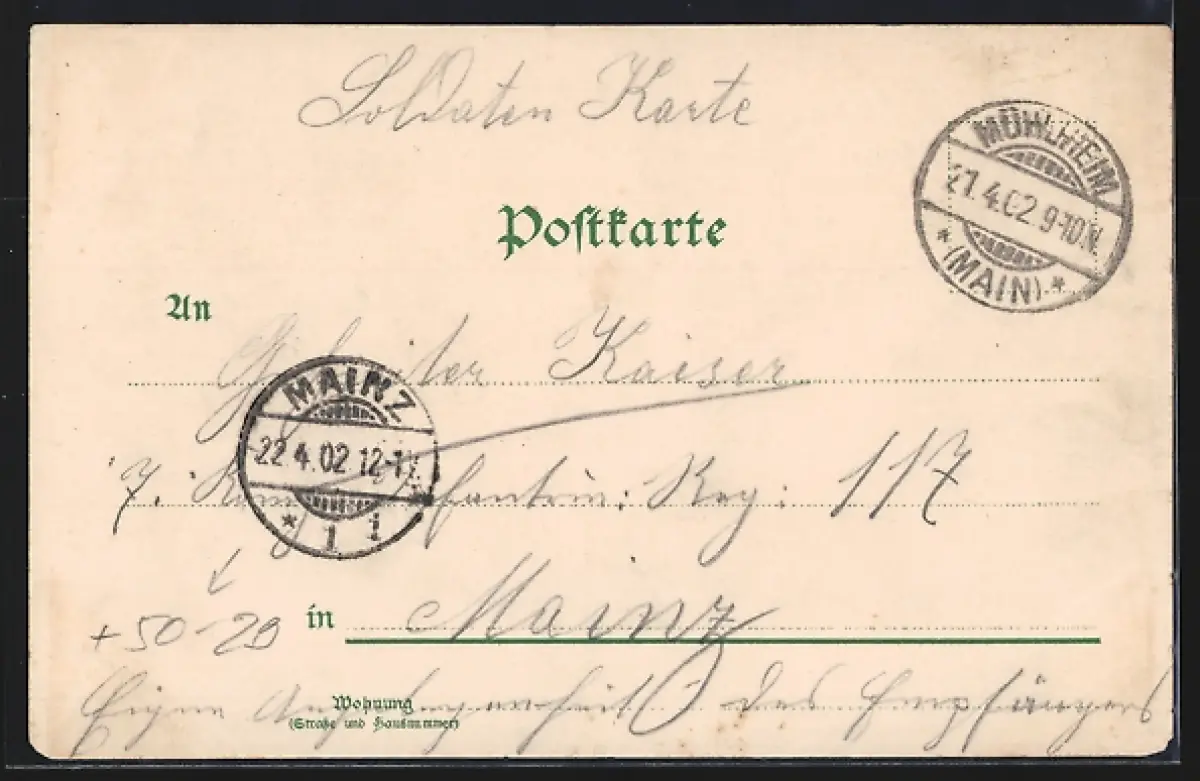 Soldaten Karte
MÜHLHEIM
21.4.02.9-10.N.
* (MAIN) *
Postkarte
An
Gefreiter Kaiser
MAINZ
22.4.02.12-1
* 1 i
7. Komp Infanterie: Reg: 117
+50-20
in Mainz
Wohnung
(Straße und Hausnummer)
Eigene Angelegenheit des Empfängers